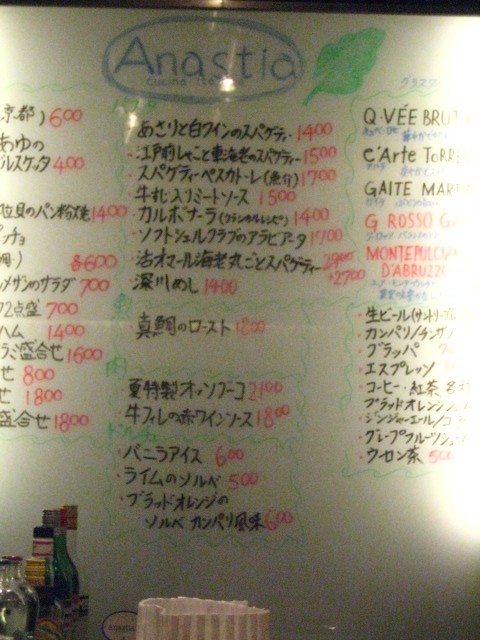 Anastia
cucina
京都) 600
あゆの
ブルスケッタ 400
貝のパン粉焼 1400
各600
サラダ 700
点盛 700
ハム 1400
盛合せ 1600
せ 800
せ 1800
盛合せ 1800
パスタ
・あさりと白ワインのスパゲティ 1400
・江戸前しゃこと東海老のスパゲティー 1500
・スパゲティーペスカトーレ(魚介) 1700
・牛すじ入りミートソース 1500
・カルボナーラ(クラシカルレシピ) 1400
・ソフトシェルクラブのアラビアータ 1700
・活オマール海老丸ごとスパゲティー 2900
2700
・深川めし 1400
魚
・真鯛のロースト 1800
肉
・夏特製オッソブーコ 2100
・牛フィレの赤ワインソース 1800
ドルチェ
・バニラアイス 600
・ライムのソルベ 500
・ブラッドオレンジの
ソルベ カンパリ風味 600
グラスワ
Q・VÉE BRUT
e'Arte TORRE
GAITE MAR
G ROSSO GA
MONTEPULCIAN
D'ABRUZZO
・生ビール(サントリープレ
・カンパリ/チンザノ
・グラッパ
・エスプレッソ
・コーヒー・紅茶
・ブラッドオレンジジュ
・ジンジャーエール/コー
・グレープフルーツジュー
・ウーロン茶 500